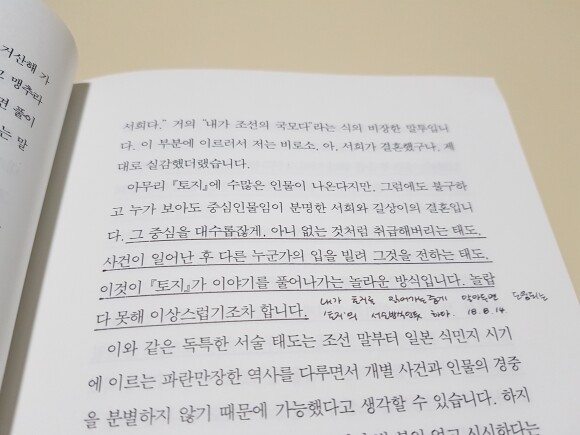 거산해 가
맹추라
면 풀이
는 말
서희다.” 거의 “내가 조선의 국모다”라는 식의 비장한 말투입니
다. 이 부분에 이르러서 저는 비로소, 아, 서희가 결혼했구나, 제
대로 실감했더랬습니다.
아무리 『토지』에 수많은 인물이 나온다지만, 그럼에도 불구하
고 누가 보아도 중심인물임이 분명한 서희와 길상이의 결혼입니
다. 그 중심을 대수롭잖게, 아니 없는 것처럼 취급해버리는 태도,
사건이 일어난 후 다른 누군가의 입을 빌려 그것을 전하는 태도,
이것이 『토지』가 이야기를 풀어나가는 놀라운 방식입니다. 놀랍
다 못해 이상스럽기조차 합니다.
내가 토지를 읽어가는 알아두면 도움되는
'토지'의 서술방식인듯 하다. 18.8.14
이와 같은 독특한 서술 태도는 조선 말부터 일본 식민지 시기
에 이르는 파란만장한 역사를 다루면서 개별 사건과 인물의 경중
을 분별하지 않기 때문에 가능했다고 생각할 수 있습니다. 하지
없고 시시하다는